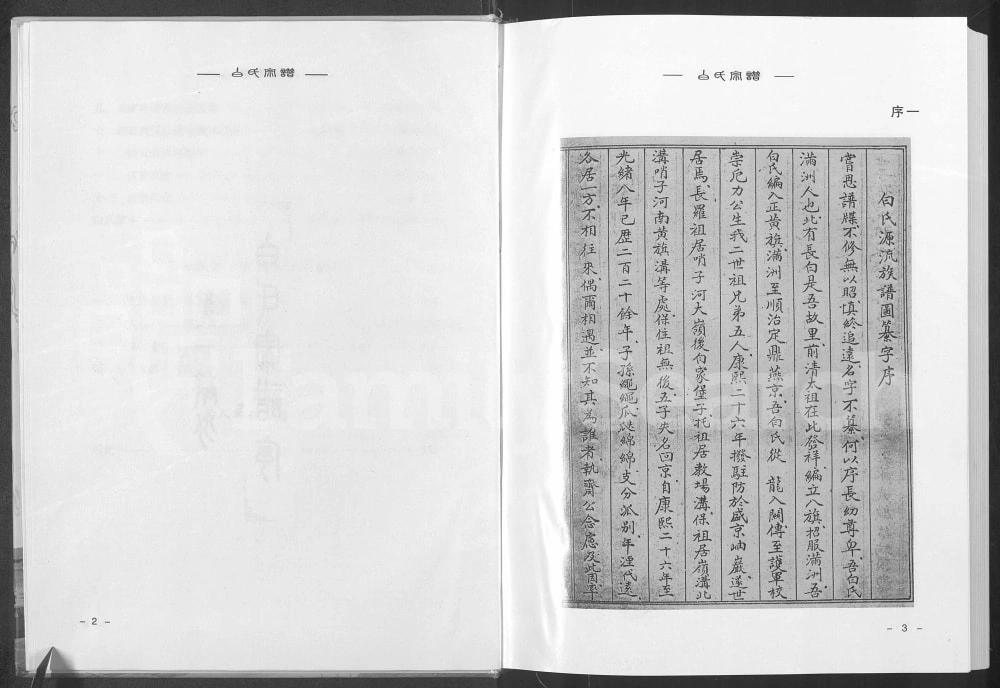 白氏宗譜
- 2 -
白氏宗譜
序一
白氏源流族譜圖纂字序
嘗思譜牒不修無以昭慎終追遠名字不纂何以序長幼尊卑吾白氏
滿洲人也此有長白是吾故里前清太祖在此發祥編立八旗招服滿洲吾
白氏編入正黃旗滿洲至順治定鼎燕京吾白氏從 龍入關傳至護軍校
崇厄力公生我二世祖兄弟五人康熙二十六年撥駐防於盛京岫巖遂世
居焉長羅祖居哨子河大嶺後白家堡子托祖居教場溝保祖居嶺溝北
溝哨子河南黃旗溝等處保住祖無後五子失名回京自康熙二十六年至
光緒八年已歷二百二十餘年子孫繩繩瓜瓞綿綿支分派別年湮代遠
各居一方不相往來偶爾相遇並不知其為誰者執齋公念慮及此因率
- 3 -